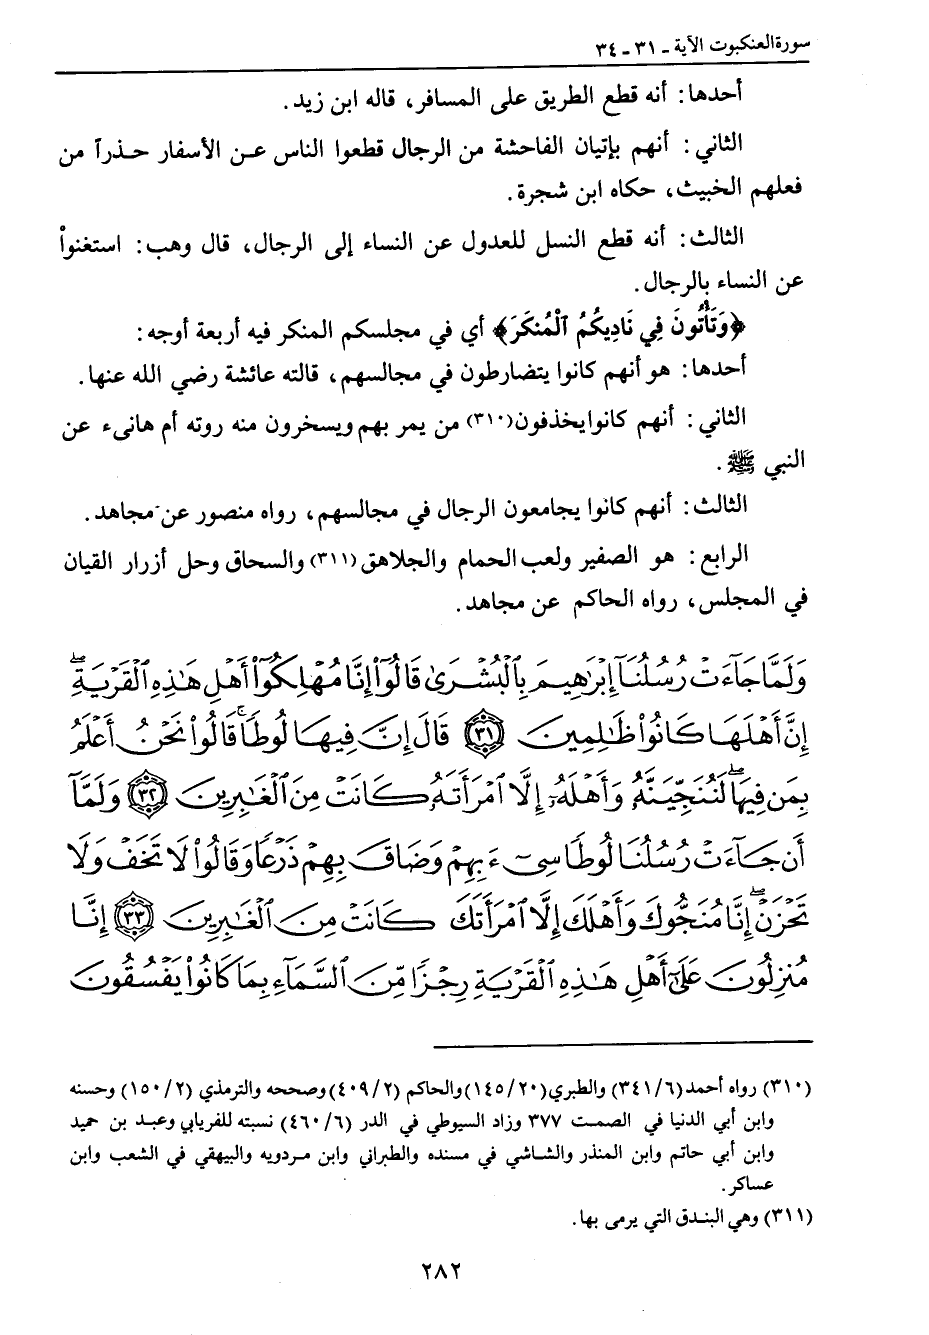 سورة العنكبوت الآية ـ ٣١ ـ ٣٤
أحدها: أنه قطع الطريق على المسافر، قاله ابن زيد.
الثاني: أنهم بإتيان الفاحشة من الرجال قطعوا الناس عن الأسفار حذراً من
فعلهم الخبيث، حكاه ابن شجرة.
الثالث: أنه قطع النسل للعدول عن النساء إلى الرجال، قال وهب: استغنواْ
عن النساء بالرجال.
﴿وَتَأْتُونَ فِي نَادِيكُمُ ٱلْمُنكَرَ﴾ أي في مجلسكم المنكر فيه أربعة أوجه:
أحدها: هو أنهم كانوا يتضارطون في مجالسهم، قالته عائشة رضي الله عنها.
الثاني: أنهم كانوا يخذفون(٣١٠) من يمر بهم ويسخرون منه روته أم هانىء عن
النبي ﷺ.
الثالث: أنهم كانوا يجامعون الرجال في مجالسهم، رواه منصور عن مجاهد.
الرابع: هو الصفير ولعب الحمام والجلاهق(٣١١) والسحاق وحل أزرار القيان
في المجلس، رواه الحاكم عن مجاهد.
وَلَمَّا جَآءَتْ رُسُلُنَآ إِبْرَٰهِيمَ بِٱلْبُشْرَىٰ قَالُوٓا۟ إِنَّا مُهْلِكُوٓا۟ أَهْلِ هَٰذِهِ ٱلْقَرْيَةِ ۖ
إِنَّ أَهْلَهَا كَانُوا۟ ظَٰلِمِينَ ٣١ قَالَ إِنَّ فِيهَا لُوطًا ۚ قَالُوا۟ نَحْنُ أَعْلَمُ
بِمَن فِيهَا ۖ لَنُنَجِّيَنَّهُۥ وَأَهْلَهُۥٓ إِلَّا ٱمْرَأَتَهُۥ كَانَتْ مِنَ ٱلْغَٰبِرِينَ ٣٢ وَلَمَّآ
أَن جَآءَتْ رُسُلُنَا لُوطًا سِىٓءَ بِهِمْ وَضَاقَ بِهِمْ ذَرْعًا وَقَالُوا۟ لَا تَخَفْ وَلَا
تَحْزَنْ ۖ إِنَّا مُنَجُّوكَ وَأَهْلَكَ إِلَّا ٱمْرَأَتَكَ كَانَتْ مِنَ ٱلْغَٰبِرِينَ ٣٣ إِنَّا
مُنزِلُونَ عَلَىٰٓ أَهْلِ هَٰذِهِ ٱلْقَرْيَةِ رِجْزًا مِّنَ ٱلسَّمَآءِ بِمَا كَانُوا۟ يَفْسُقُونَ
(٣١٠) رواه أحمد (٣٤١/٦) والطبري (١٤٥/٢٠) والحاكم (٤٠٩/٢) وصححه والترمذي (١٥٠/٢) وحسنه
وابن أبي الدنيا في الصمت ٣٧٧ وزاد السيوطي في الدر (٤٦٠/٦) نسبته للفريابي وعبد بن حميد
وابن أبي حاتم وابن المنذر والشاشي في مسنده والطبراني وابن مردويه والبيهقي في الشعب وابن
عساكر.
(٣١١) وهي البندق التي يرمى بها.
٢٨٢